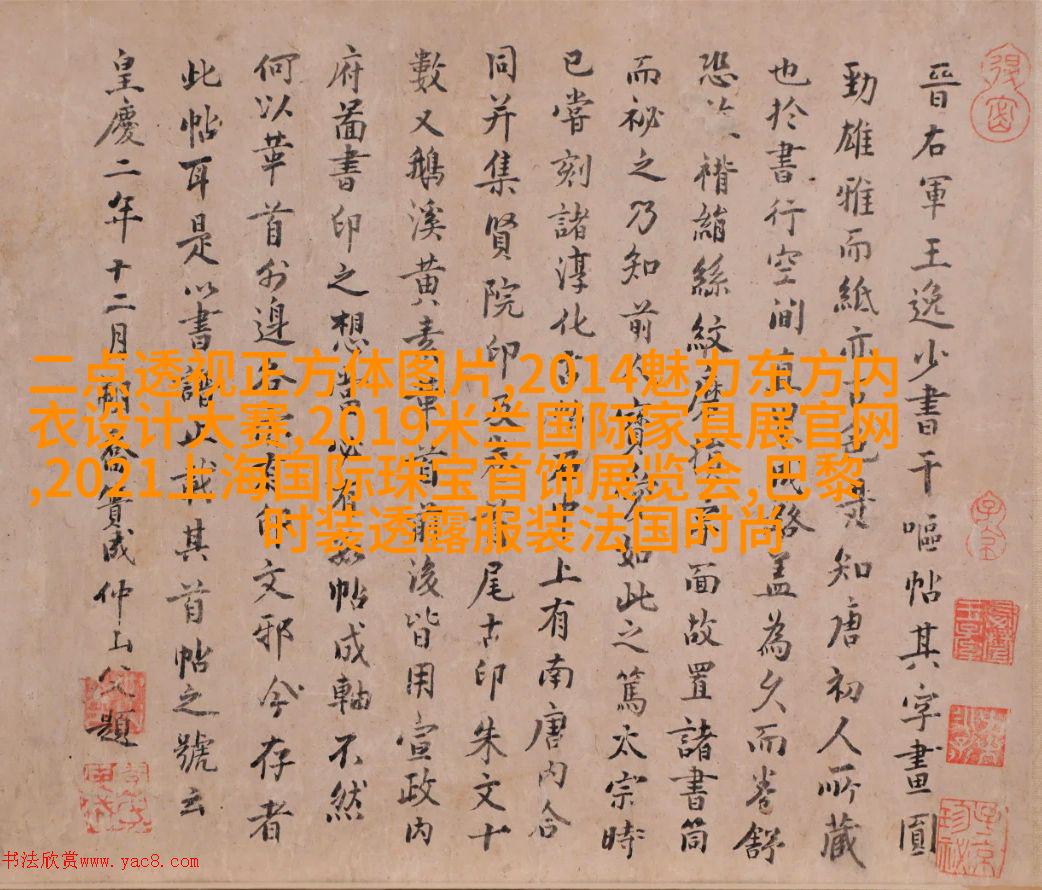 晉右軍王逸少書干嘔帖其字畫圓
勁雄雅而紙亦古色是知唐初人所藏
也於書行空間界路盖為久而卷舒
恐褙絹絲紋磨字面故置諸書筒
而祕之乃知前代寶如此之篤太宗時
已嘗刻諸淳化上有南唐內合
同并集賢院印及卷首尾古印朱文十
數又鵝溪黄素首前後皆用宣政內
府啚書印之想當必有數帖成軸不然
何以華首外邊各有文邪今存者
此帖耳是以書譜止載其首帖之號云
皇慶二年十二月喬簣成仲山父題
二点透视正方体图片,2014魅力东方内
衣设计大赛,2019米兰国际家具展官网
,2021上海国际珠宝首饰展览会,巴黎
时装透露服装法国时尚
书法欣赏www.yac8.com